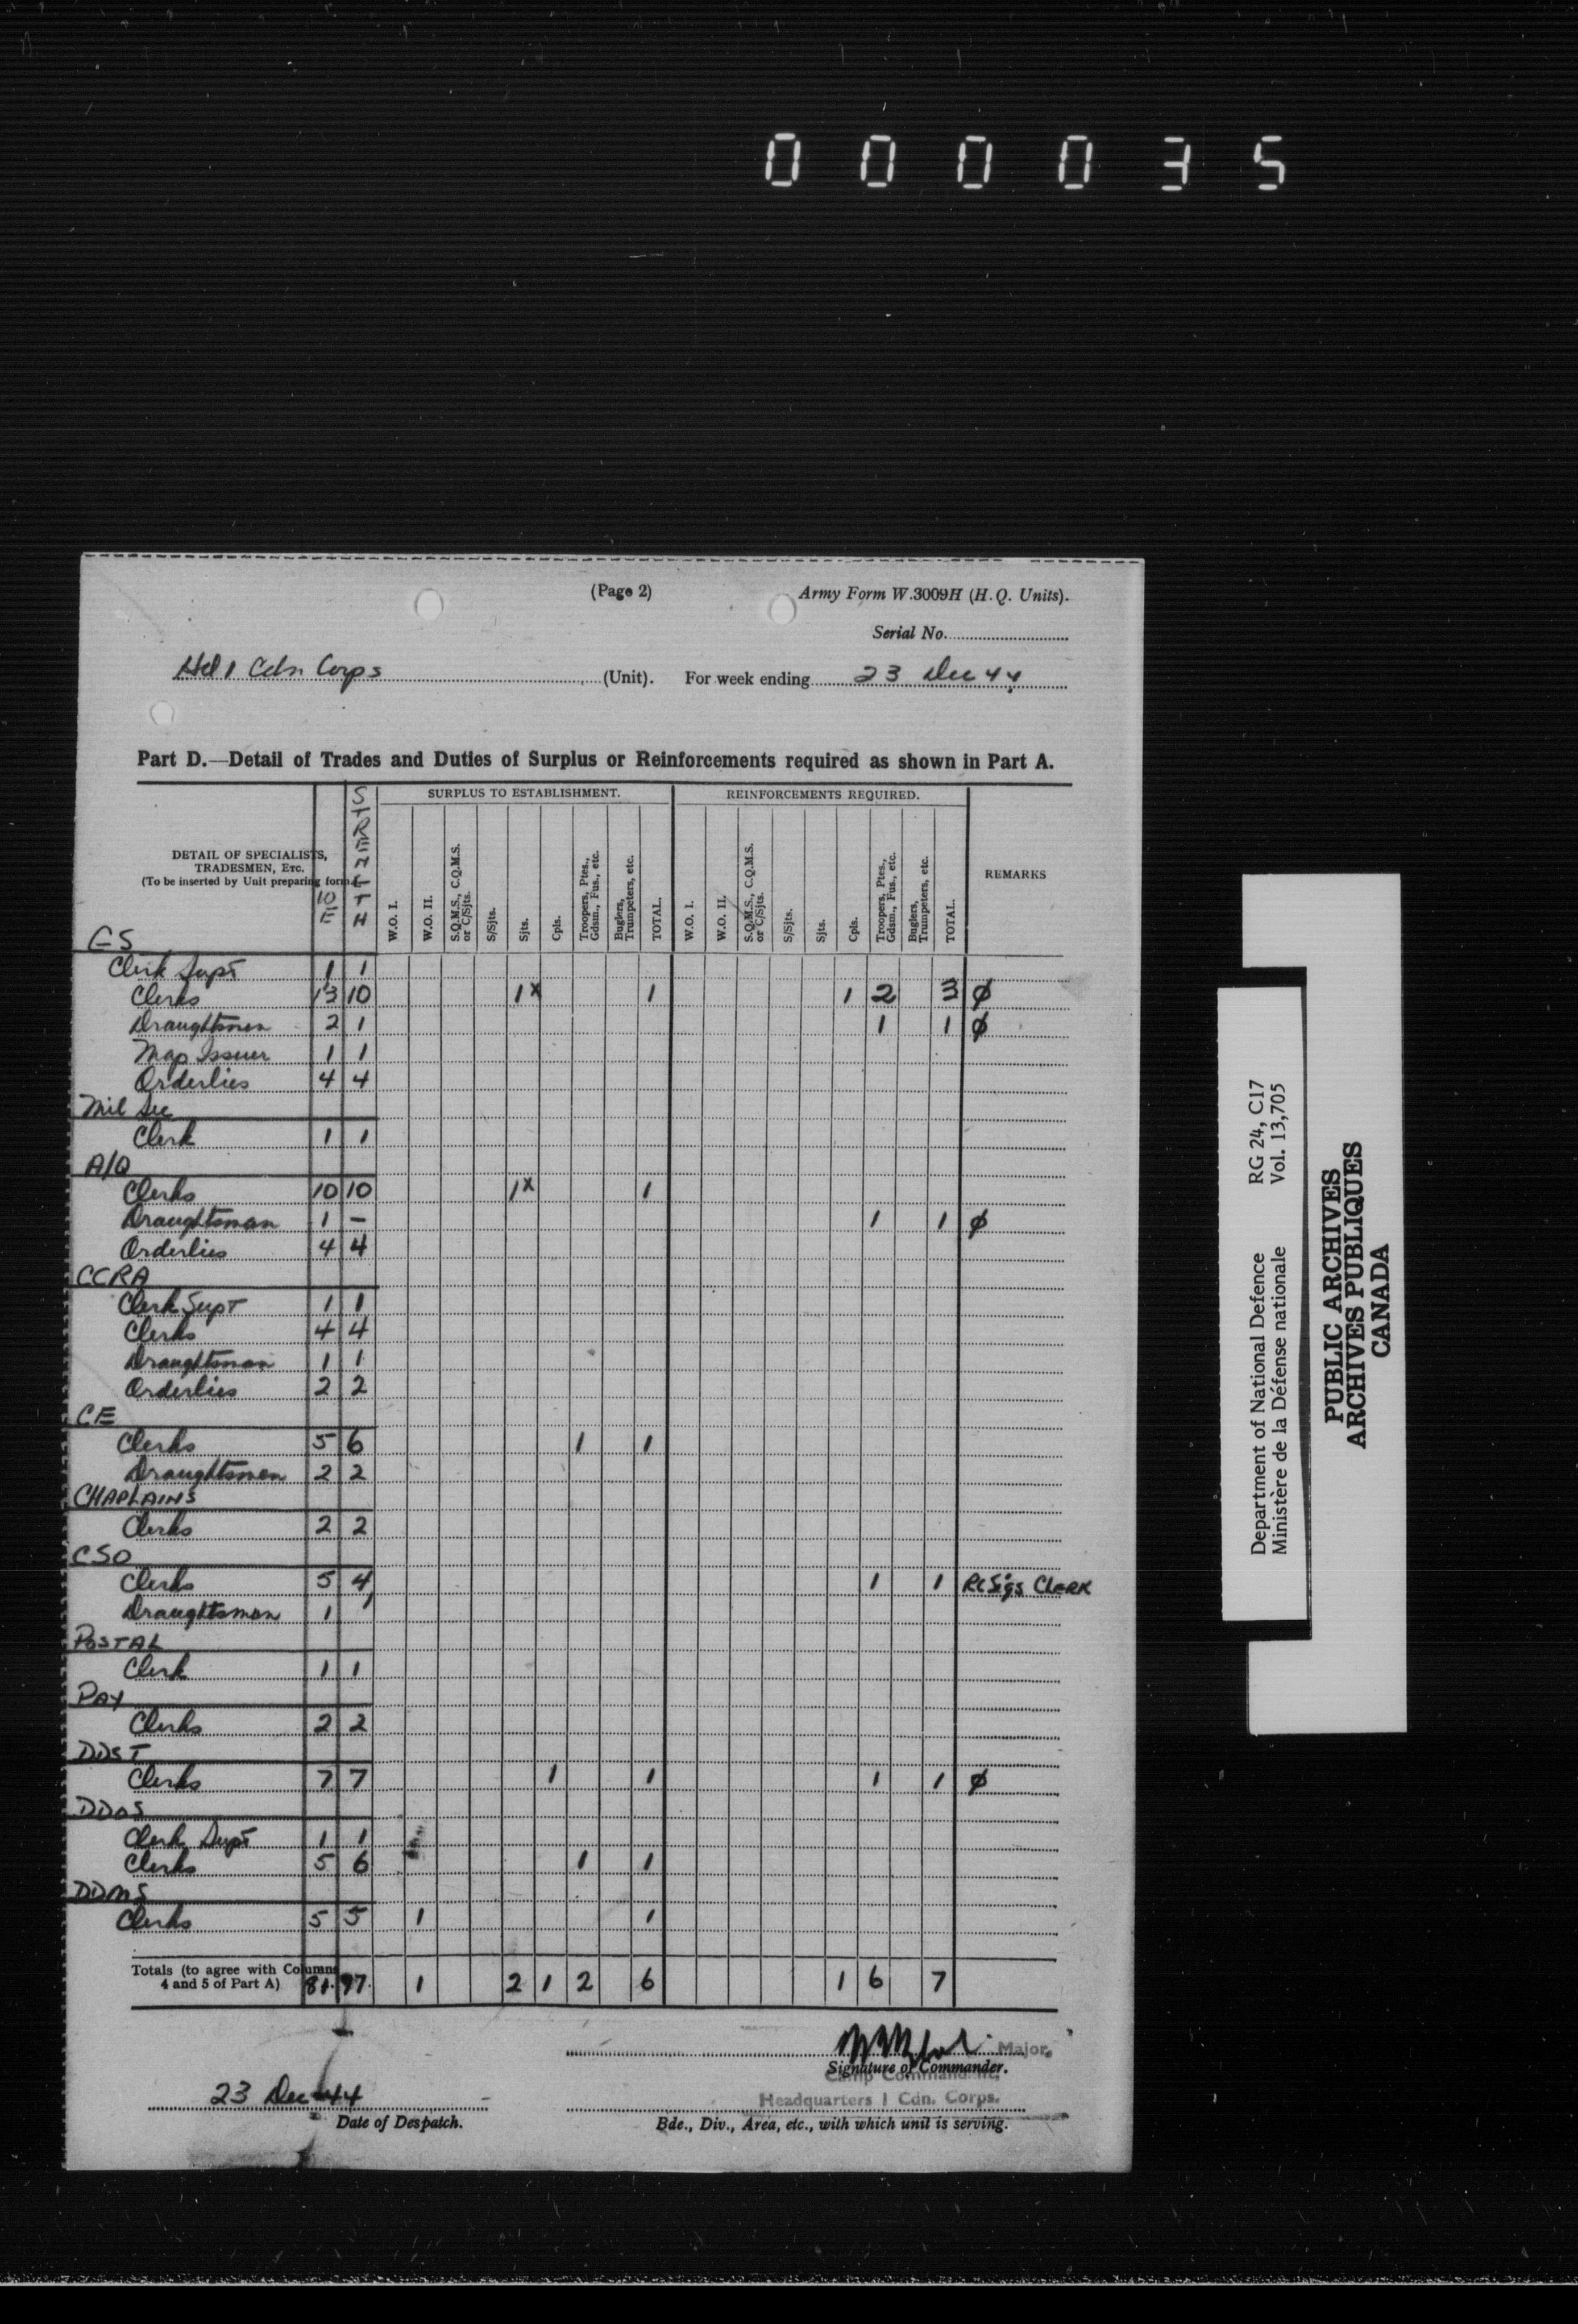 000035
(Page 2) Army Form W.3009H (H.Q. Units).
Serial No.
Hd 1 Cdn Corps (Unit). For week ending 23 Dec 44
Part D.—Detail of Trades and Duties of Surplus or Reinforcements required as shown in Part A.
DETAIL OF SPECIALISTS, TRADESMEN, ETC.
(To be inserted by Unit preparing form.)
STRENGTH
SURPLUS TO ESTABLISHMENT.
REINFORCEMENTS REQUIRED.
REMARKS
W.O. I. W.O. II. S.Q.M.S., C.Q.M.S. or C/Sjts. S/Sjts. Sjts. Cpls. Troopers, Ptes., Gdsm., Fus., etc. Buglers, Trumpeters, etc. TOTAL.
W.O. I. W.O. II. S.Q.M.S., C.Q.M.S. or C/Sjts. S/Sjts. Sjts. Cpls. Troopers, Ptes., Gdsm., Fus., etc. Buglers, Trumpeters, etc. TOTAL.
GS
Clerk Supt 1 1
Clerks 13 10 1x 1 1 2 3 ø
Draughtsmen 2 1 1 1 ø
Map Issuer 1 1
Orderlies 4 4
Mil Sec
Clerk 1 1
A/Q
Clerks 10 10 1x 1
Draughtsman 1 – 1 1 ø
Orderlies 4 4
CCRA
Clerk Supt 1 1
Clerks 4 4
Draughtsman 1 1
Orderlies 2 2
CE
Clerks 5 6 1 1
Draughtsmen 2 2
CHAPLAINS
Clerks 2 2
CSO
Clerks 5 4 1 1 RC Sigs CLERK
Draughtsman 1 1
POSTAL
Clerk 1 1
PAY
Clerks 2 2
DDST
Clerks 7 7 1 1 1 1 ø
DDOS
Clerk Supt 1 1
Clerks 5 6 1 1
DDMS
Clerks 5 5 1 1
Totals (to agree with Columns 4 and 5 of Part A) 81 1 2 1 2 6 1 6 7
Major,
Signature of Commander.
Camp Commandant,
Headquarters 1 Cdn. Corps.
23 Dec 44
Date of Despatch. Bde., Div., Area, etc., with which unit is serving.
Department of National Defence RG 24, C17
Ministère de la Défense nationale Vol. 13,705
PUBLIC ARCHIVES
ARCHIVES PUBLIQUES
CANADA